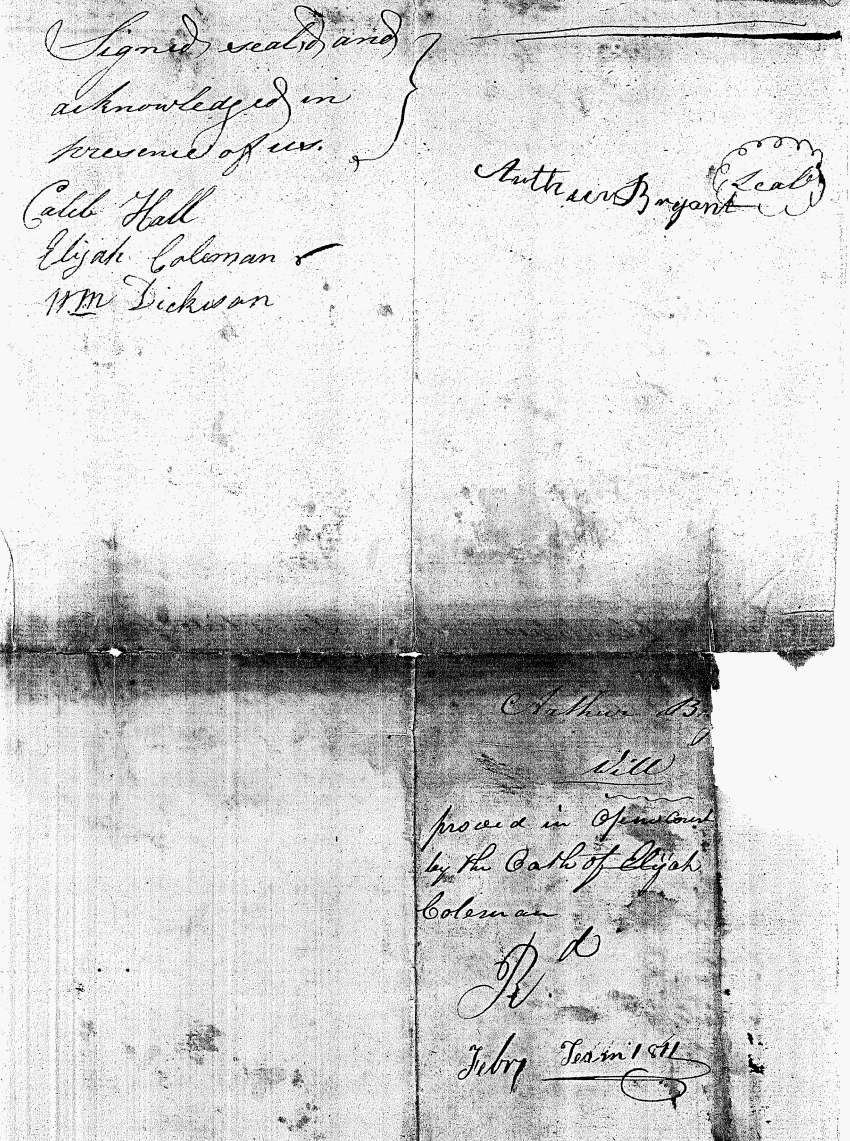 Signed seald and
acknowledged in
presence of us.
Arthur Bryant seal
Caleb Hall
Elijah Coleman
Wm Dickson
Arthur B
Will
proved in Open Court
by the Oath of Elijah
Coleman
Rd
Febry Term 1811